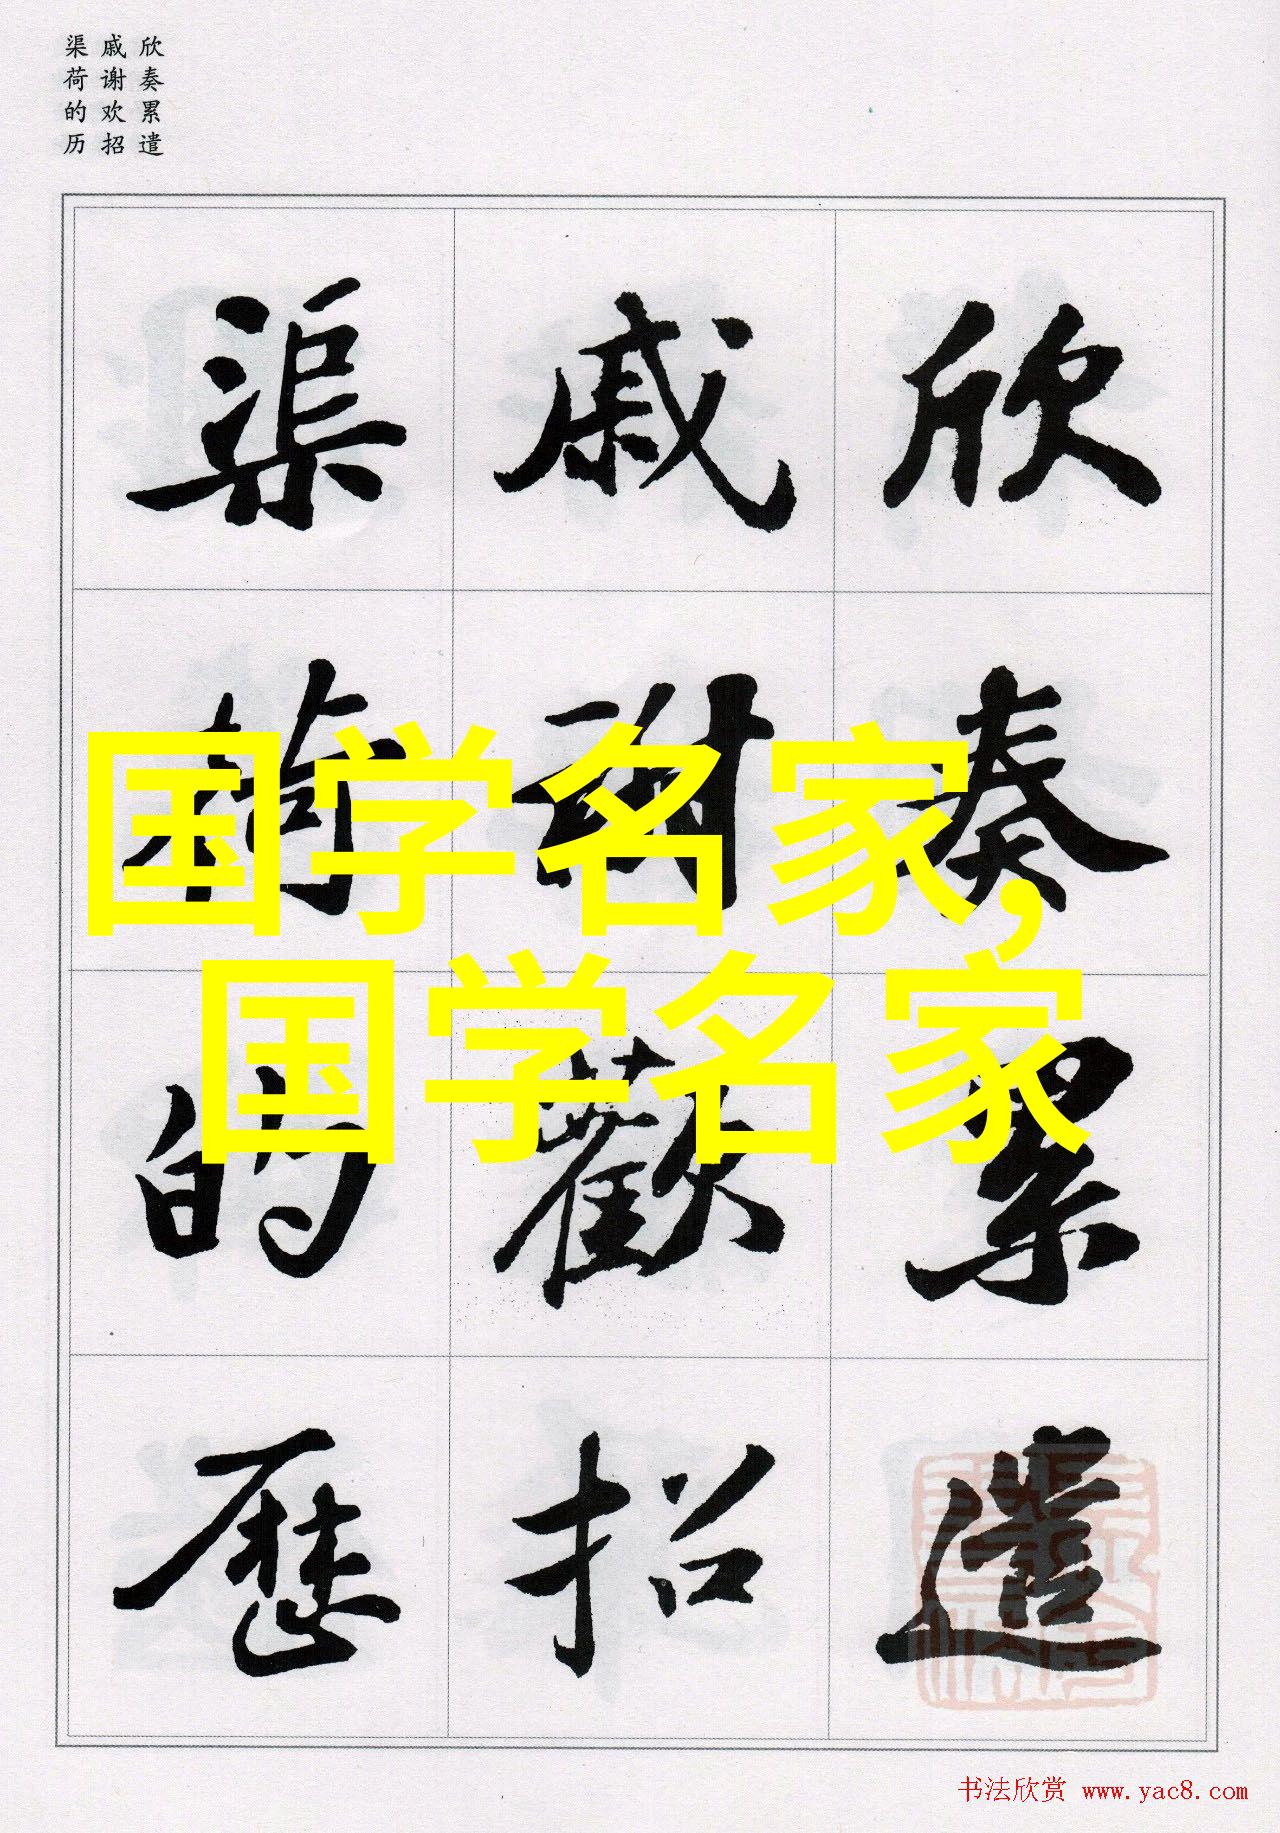 欣奏累遣
戚谢欢招
渠荷的历
欣奏累遣
戚謝歡招
渠荷的歷
国学名家,
国学名家
书法欣赏 www.yac8.com